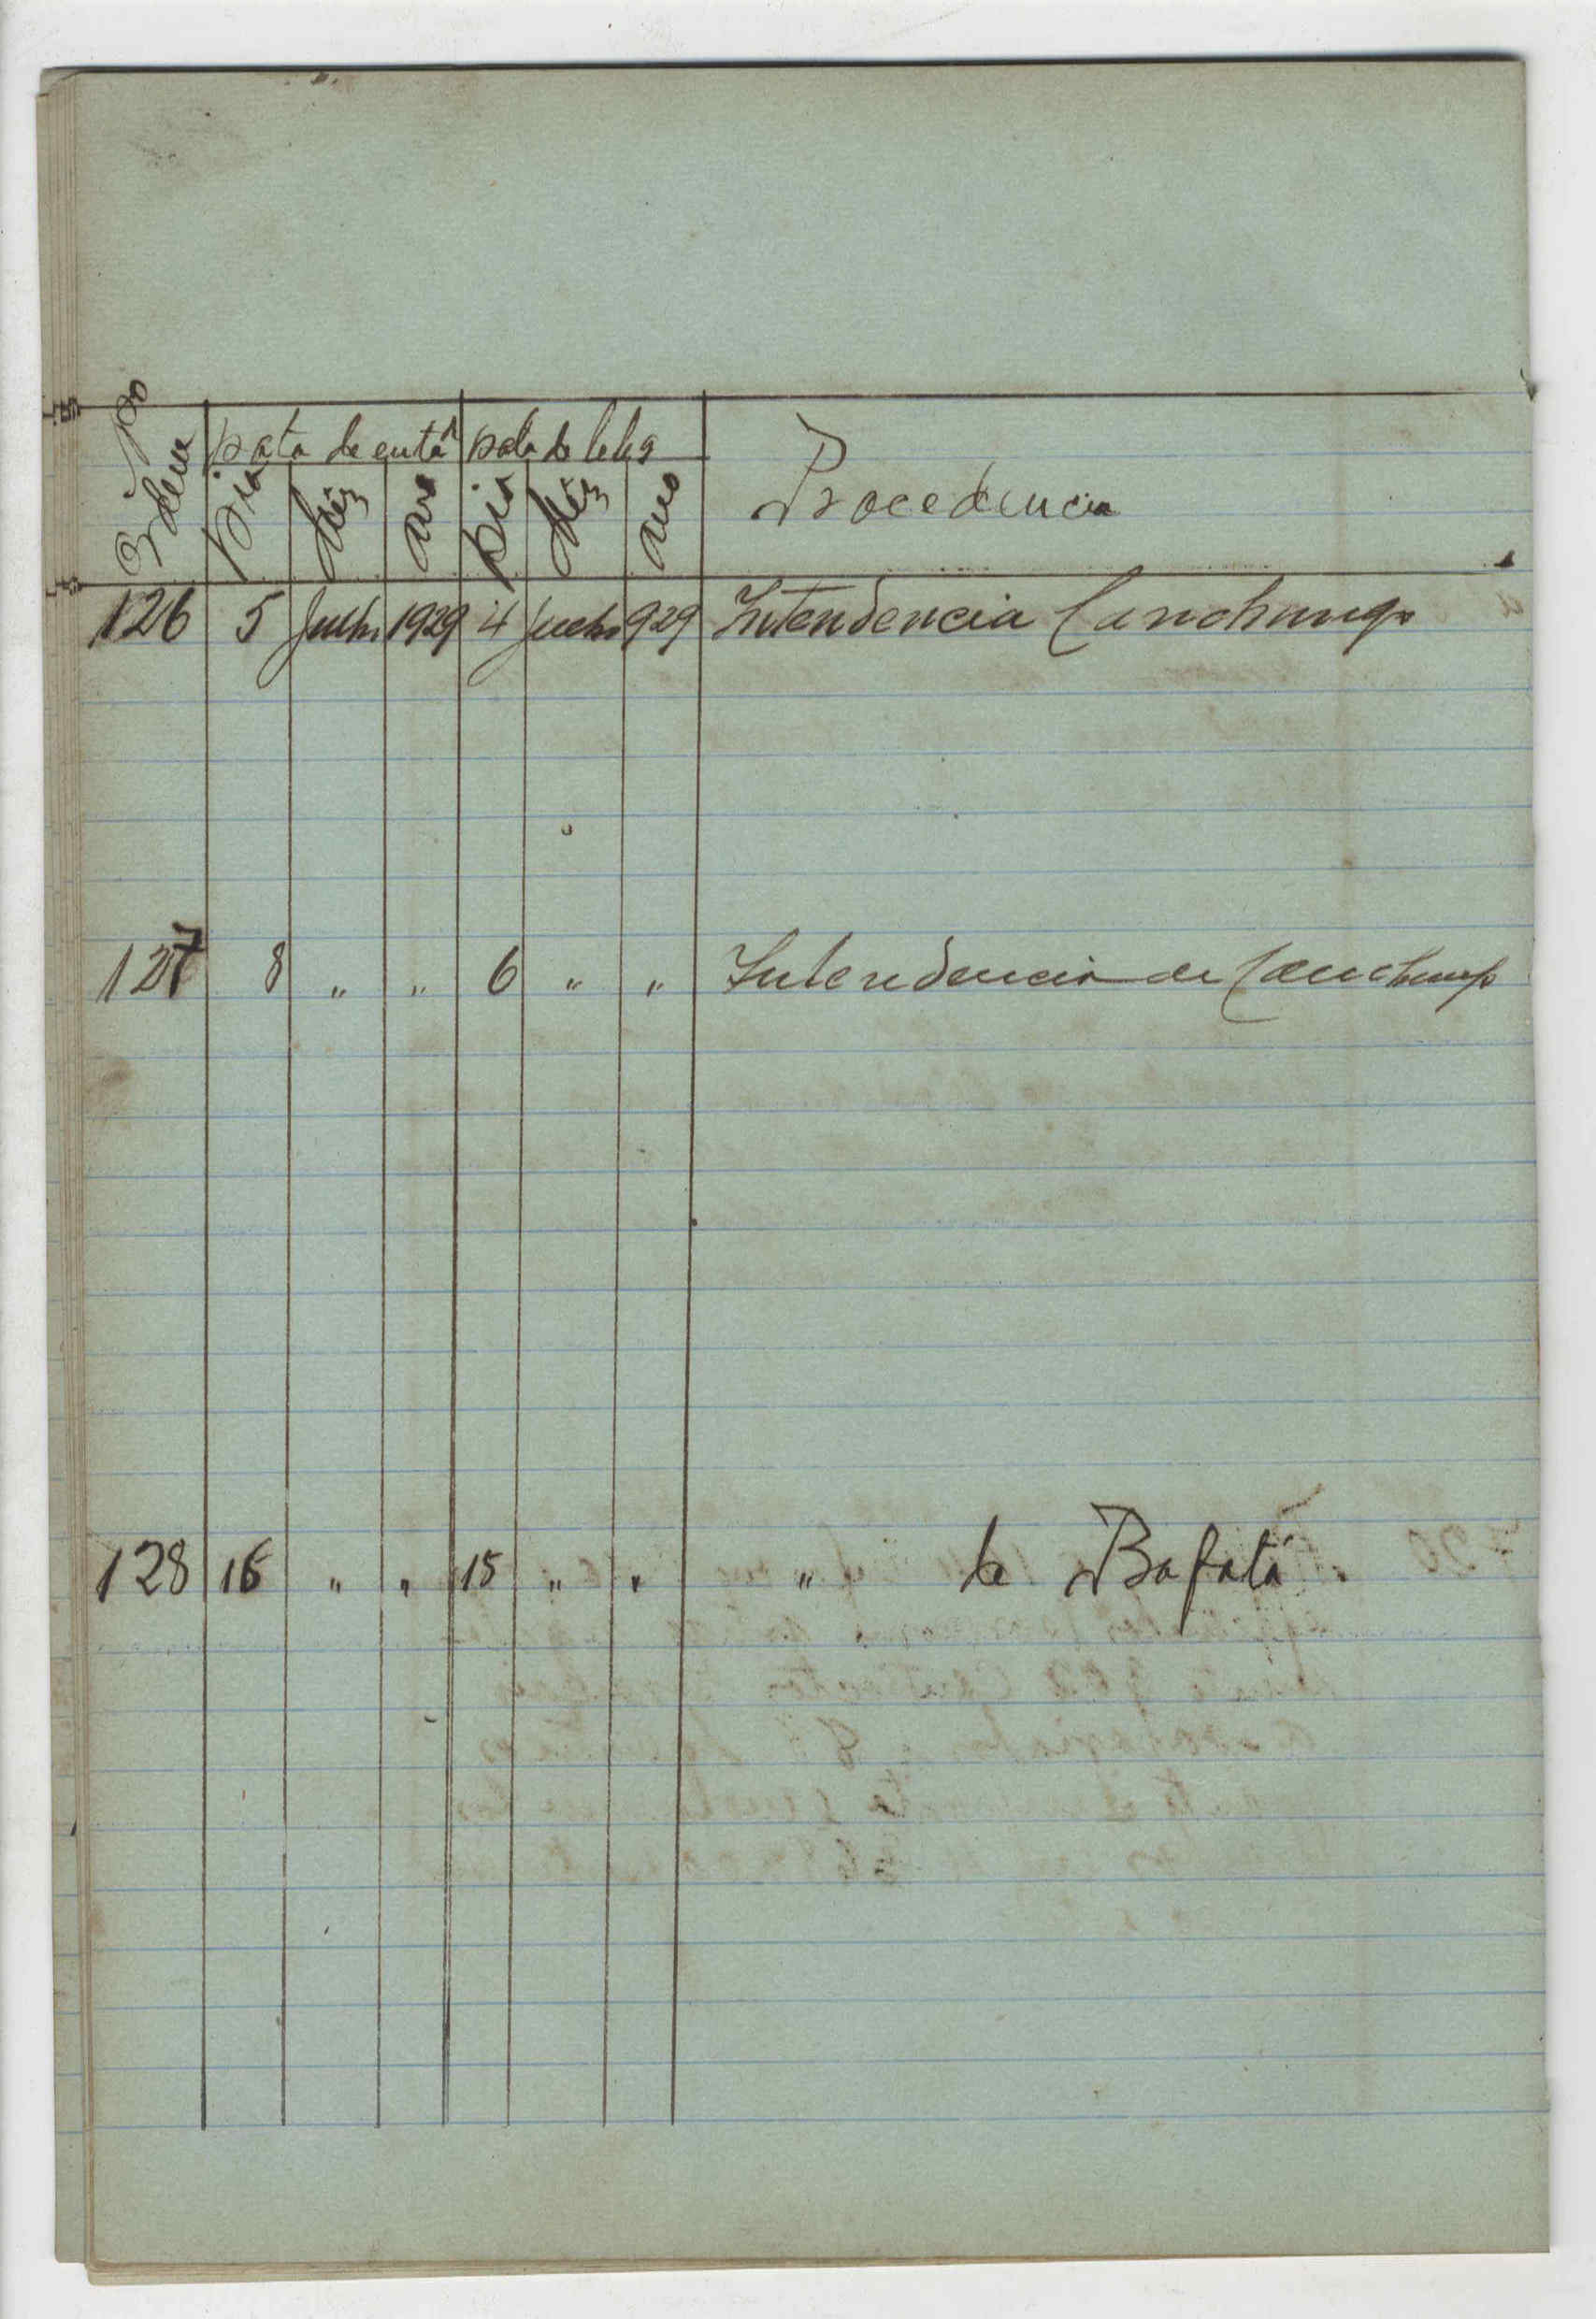 No
Ordem
Data de entrª Data de
Dia Mêz Ano Dia Mêz Ano Procedencia
126 5 Julho 1929 4 Julho 929 Intendencia Canchungo
127 8 " " 6 " " Intendencia de Canchungo
128 16 " " 15 " " " de Bafatá.